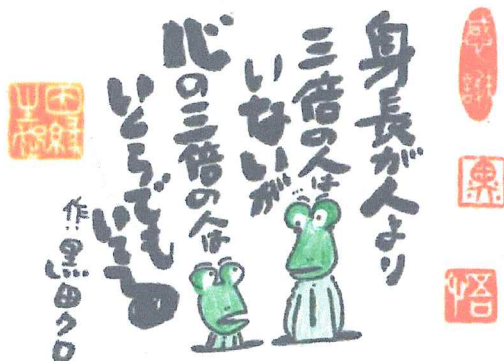 感謝
悟
身長が人より
三倍の人は
いないが
心の三倍の人は
いくらでも
いてる
作:黒田クロ